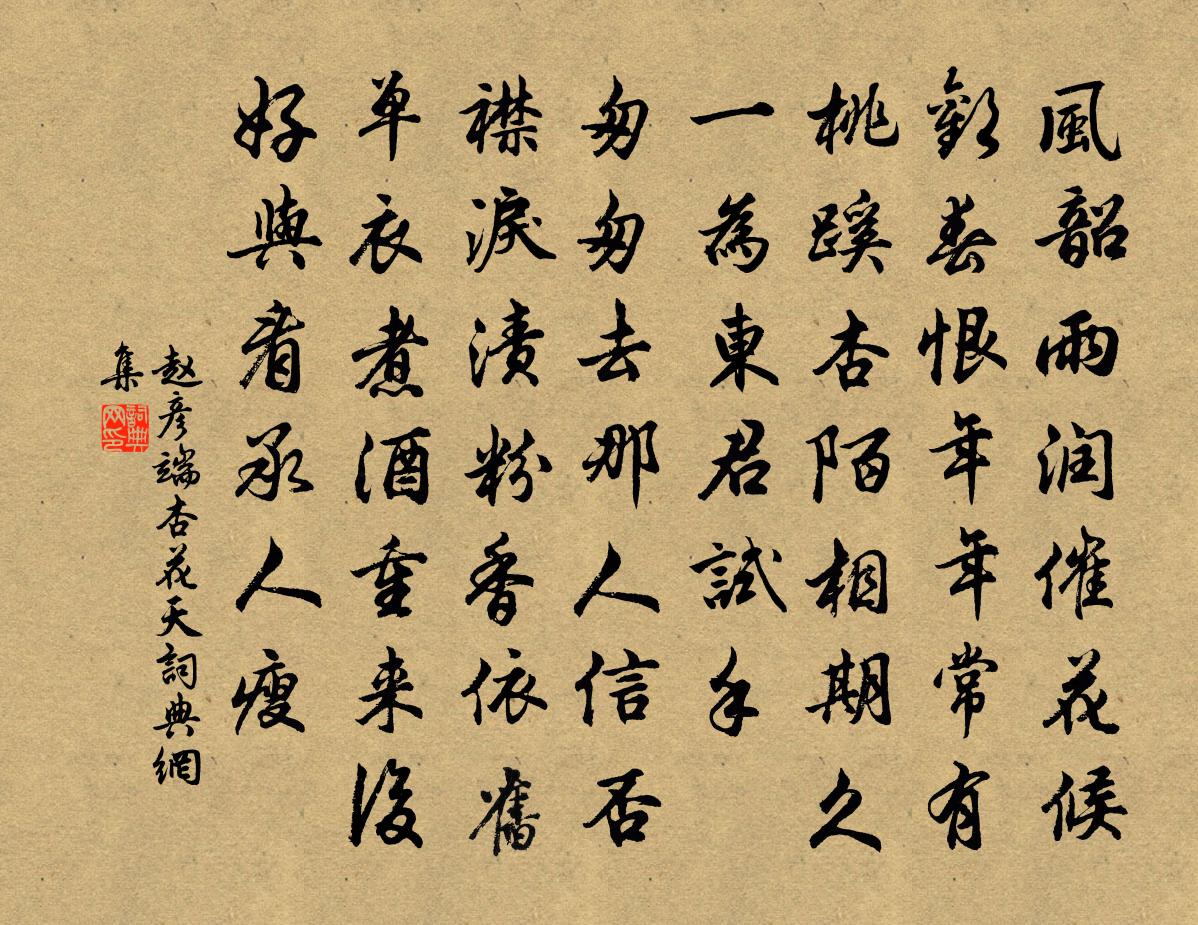 風韶雨润催花候
勸春恨年年常有
桃蹊杏陌相期久
一為東君試手
匆匆去那人信否
襟淚漬粉香依舊
单衣煮酒重来後
好與看承人瘦
赵彦端杏花天詞典網
集
詞典网印